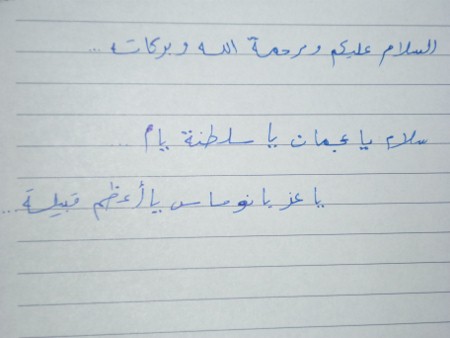 السلام عليكم ورحمة الله وبركاته ...
سلام يا عجمان يا سلطنة يام ...
يا عز يا نوماس يا أعظم قبيلة ...